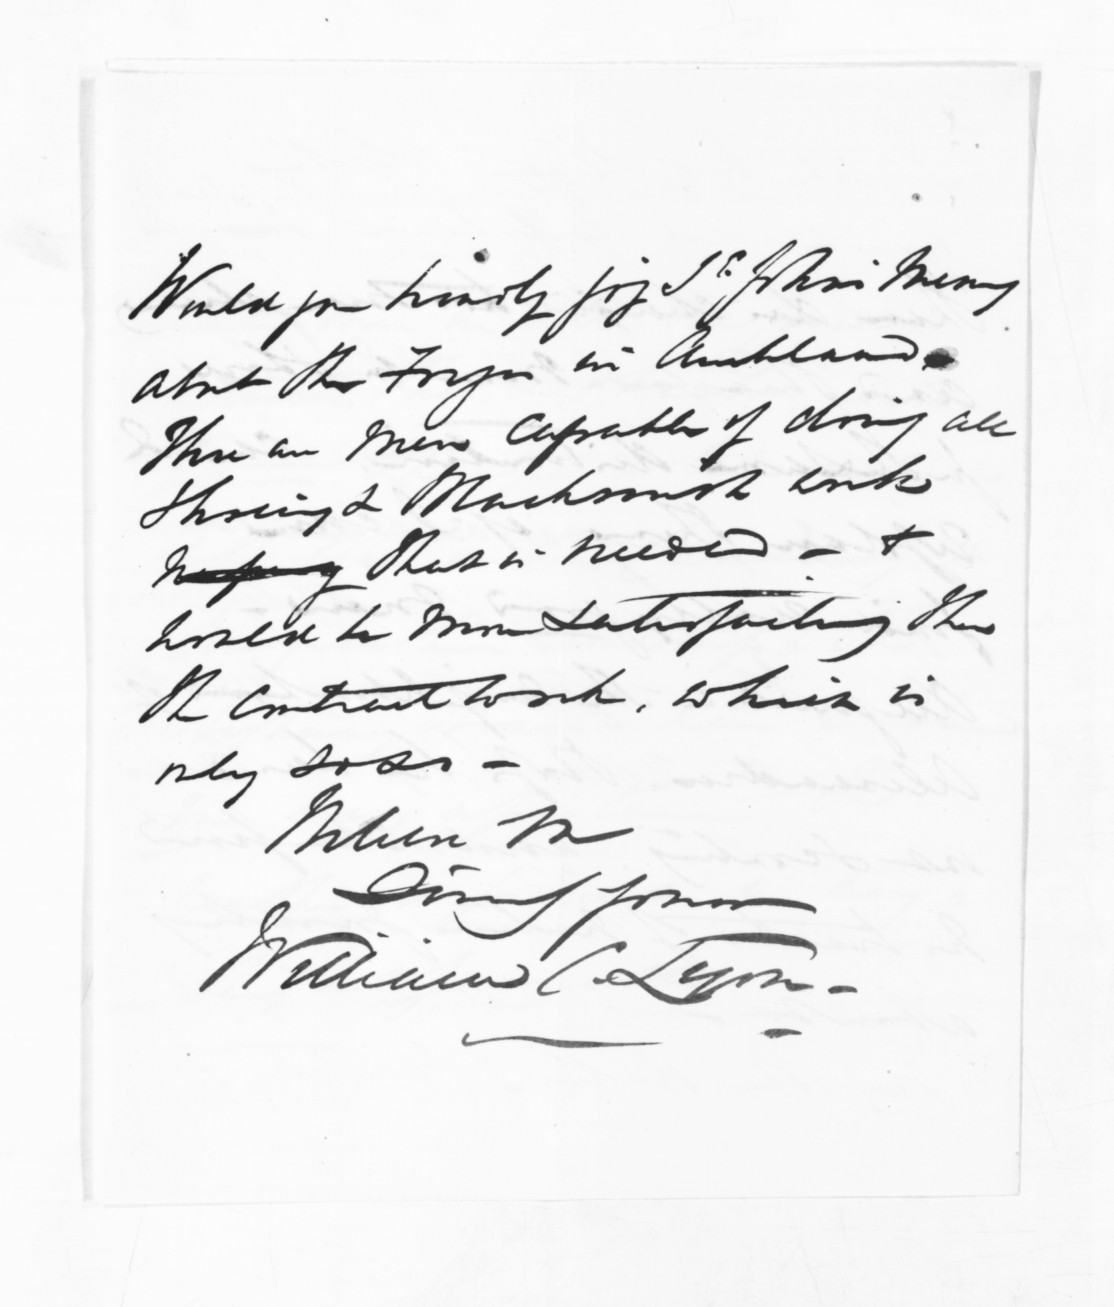 Would you kindly jog St. John's Memory
about the Forges in Auckland.
There are Men capable of doing all
Shoeing & Blacksmith work
that is needed - &
would be More Satisfactory than
the Contract work, which is
only so so -
Believe Me
Sincerely yours
William C. Lyon -